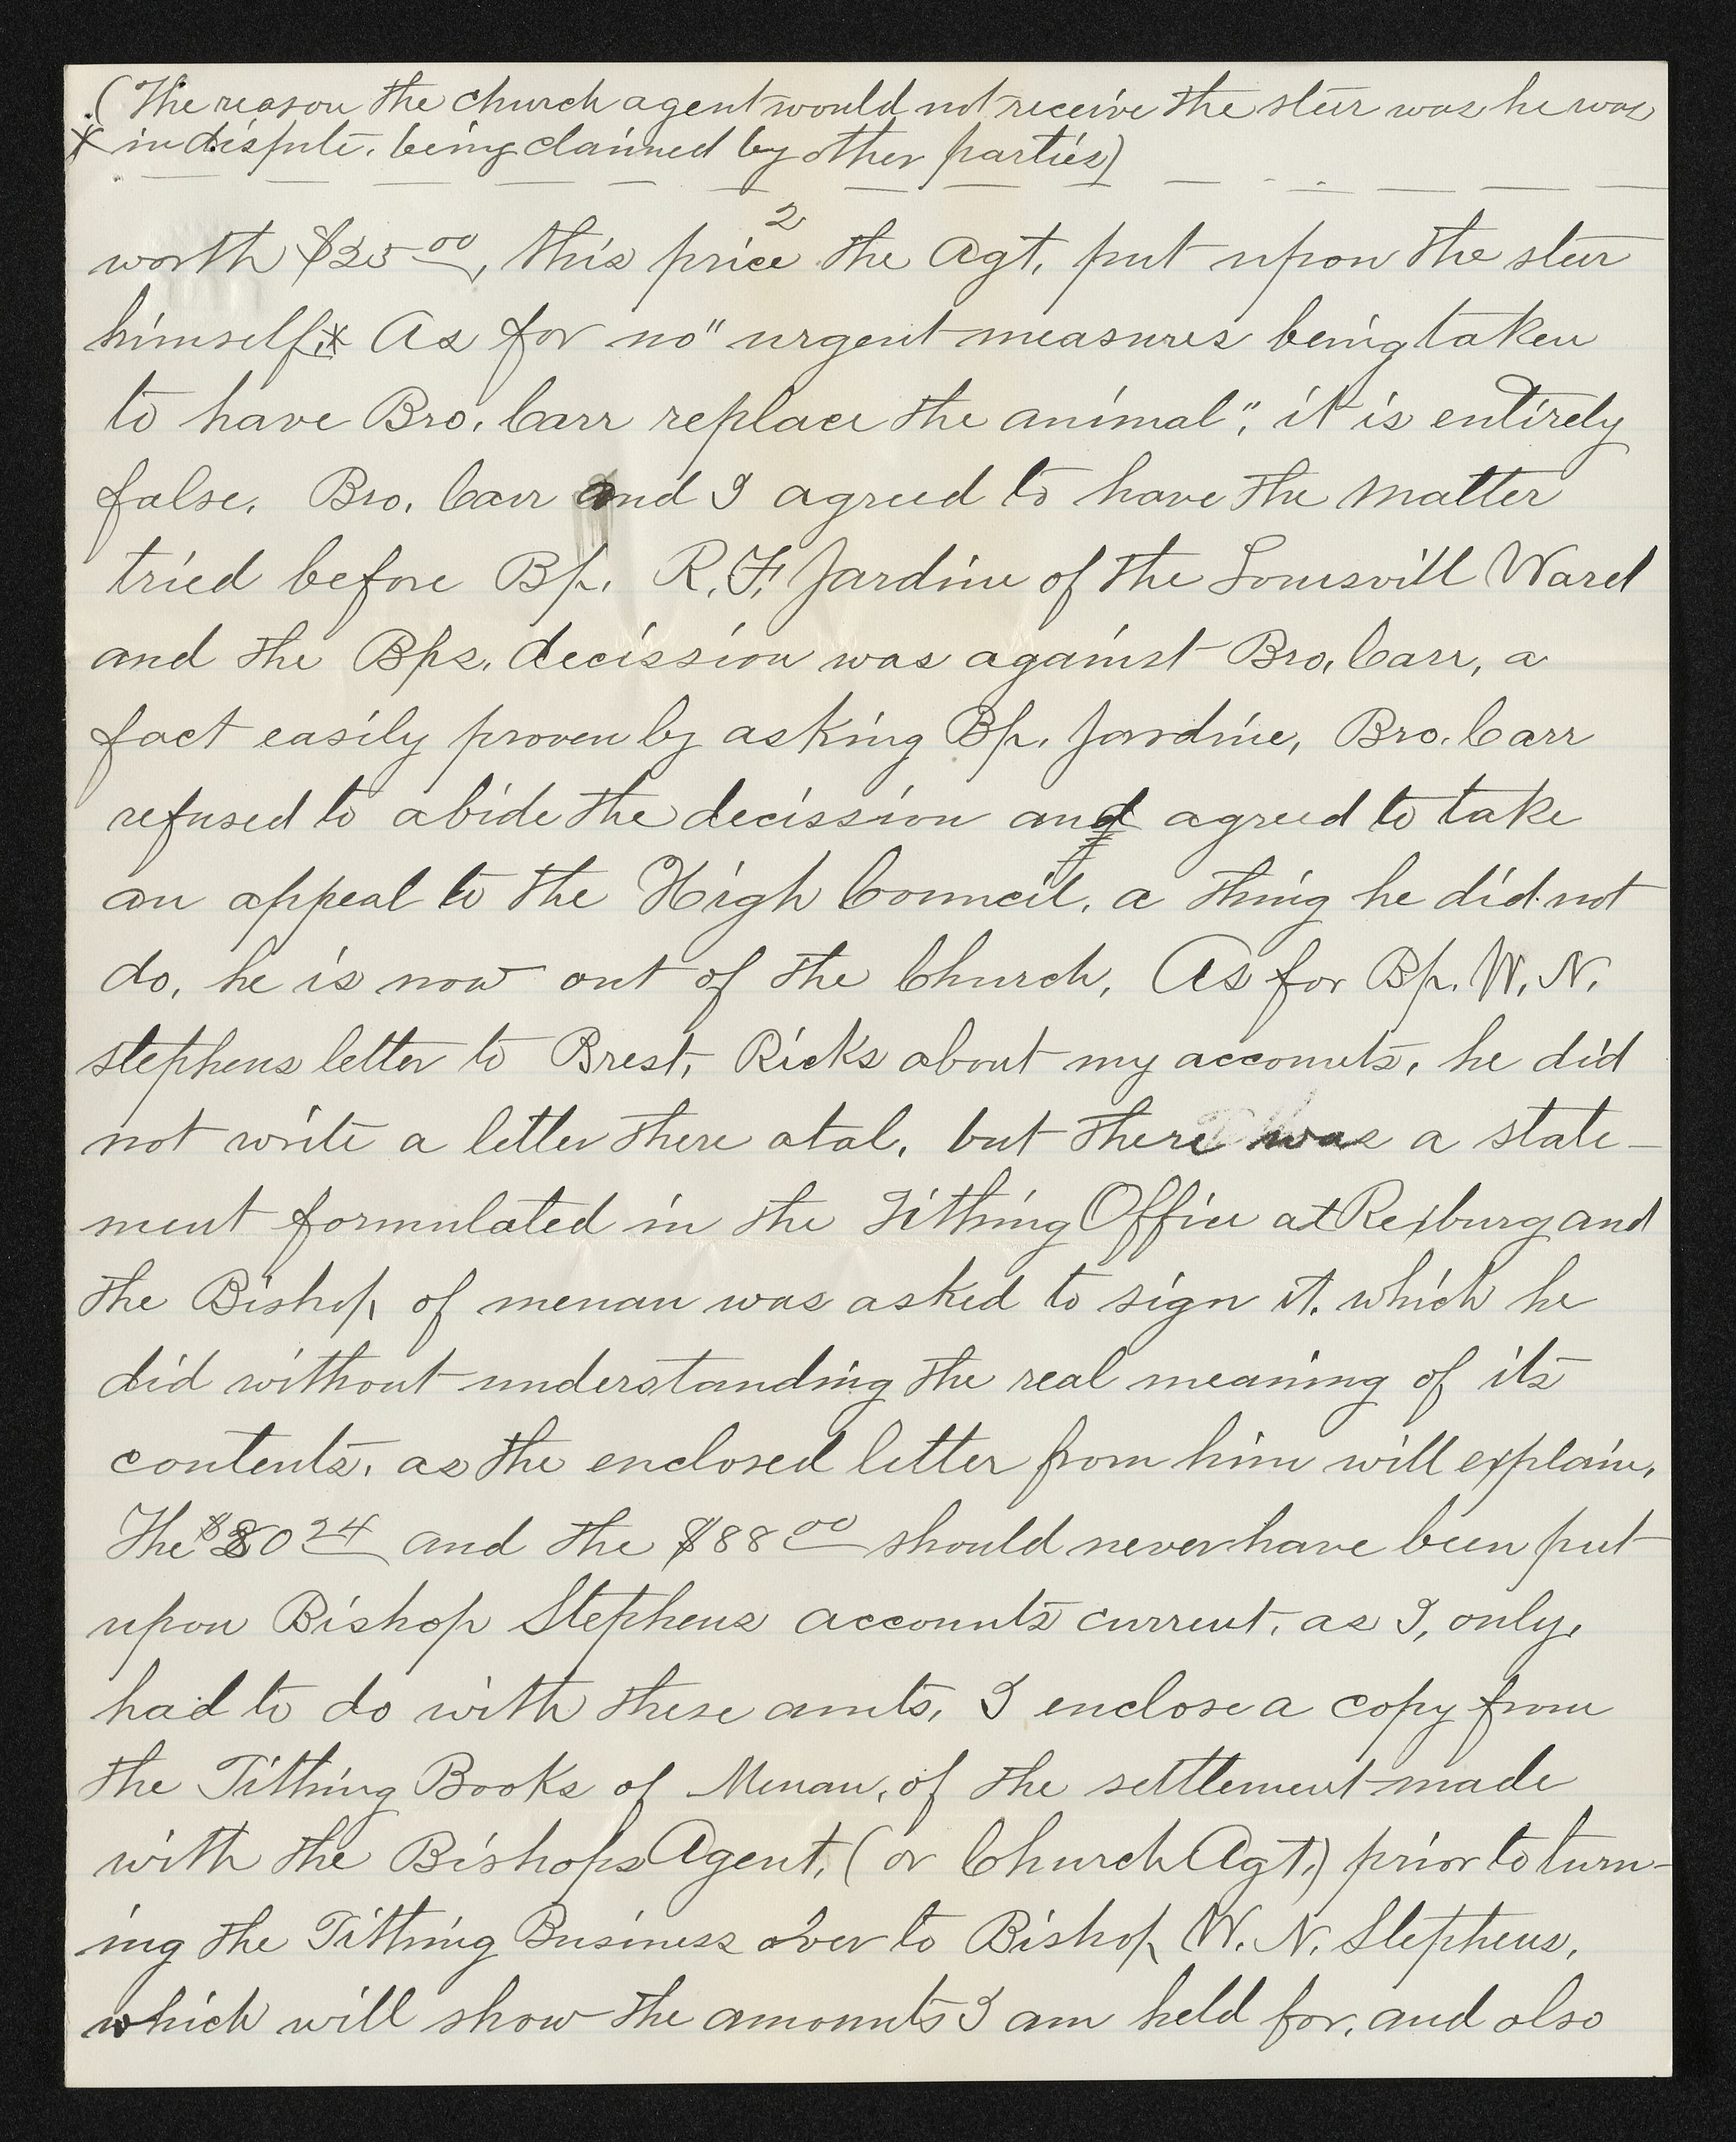 (The reason the church agent would not receive the steer was he was
* in dispute, being claimed by other parties)
2
worth $25.00, this price the Agt. put upon the steer
himself.* As for no" urgent measures being taken
to have Bro. Carr replace the animal", it is entirely
false. Bro. Carr and I agreed to have the matter
tried before Bp. R. F. Jardine of the Louisvill Ward
and the Bps. decission was against Bro. Carr, a
fact easily proven by asking Bp. Jardine, Bro. Carr
refused to abide the decission and agreed to take
an appeal to the High Council, a thing he did not
do, he is now out of the Church. As for Bp. W. N.
stephens letter to Prest. Ricks about my accounts, he did
not write a letter there atal, but there was a state-
ment formulated in the Tithing Office at Rexburg and
the Bishop of menan was asked to sign it, which he
did without understanding the real meaning of its
contents, as the enclosed letter from him will explain,
The $80 24 and the $88 00 should never have been put
upon Bishop Stephens accounts current, as I, only,
had to do with these amts, I enclose a copy from
the Tithing Books of Menan, of the settlement made
with the Bishops Agent, (or Church Agt.) prior to turn-
ing the Tithing Business over to Bishop W. N. Stephens,
which will show the amounts I am held for, and also